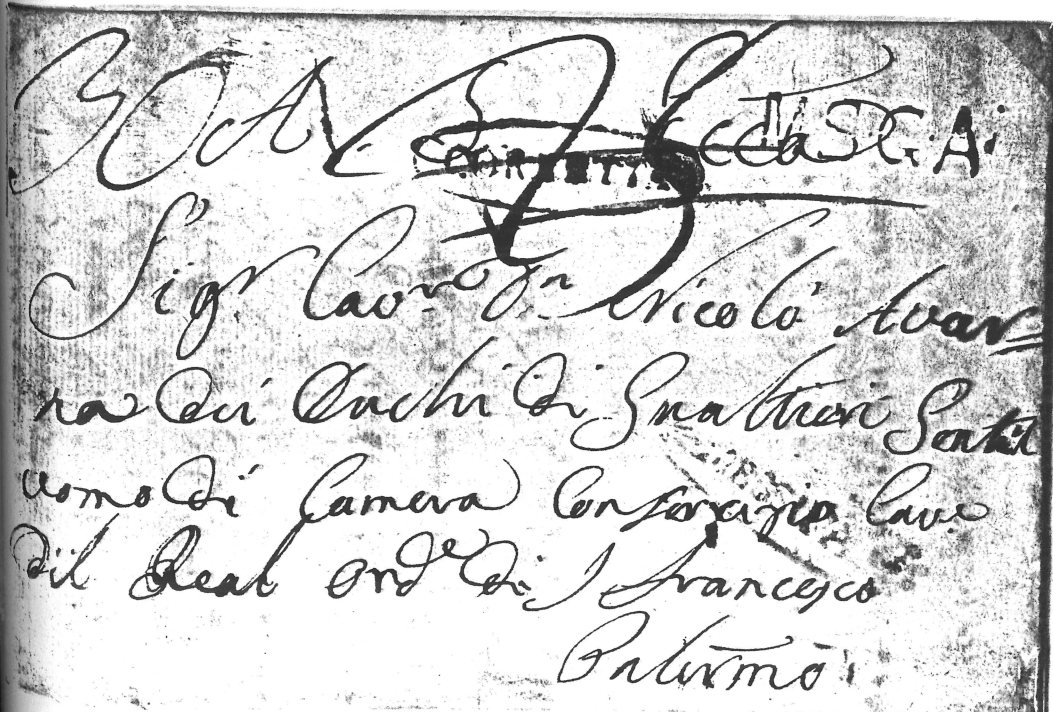 Sigr Cavre Dn Nicolò Avar=
na dei Duchi di Gualtieri Gentil
uomo di Camera Con servizio Cave
dil Real Orde di S Francesco
Palermo